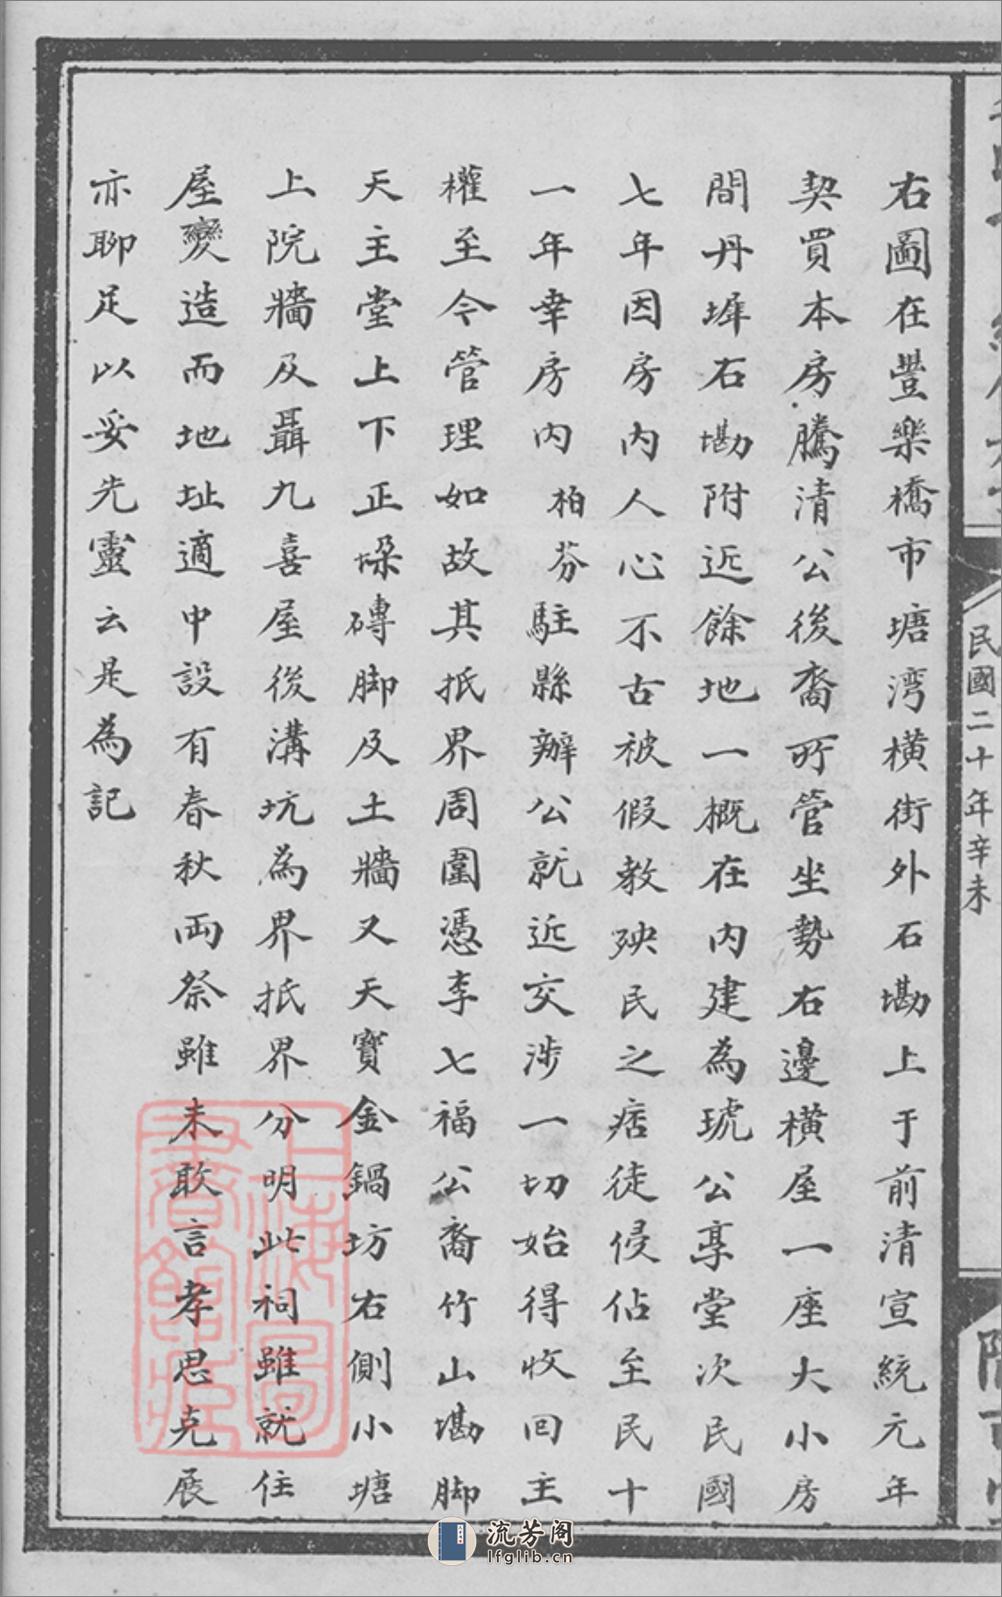 民國二十年辛未
右圖在豐樂橋市塘湾橫街外石墈上于前清宣統元年
契買本房騰清公後裔所管坐勢右邊橫屋一座大小房
間丹墀石墈附近餘地一概在內建為琥公享堂次民國
七年因房內人心不古被假教殃民之痞徒侵佔至民十
一年幸房內柏芬駐縣辦公就近交涉一切始得收回主
權至今管理如故其抵界周圍憑李七福公裔竹山墈脚
天主堂上下正垛磚脚及土牆又天寶金鍋坊右側小塘
上院牆及聶九喜屋後溝坑為界抵界分明此祠雖就住
屋變造而地址適中設有春秋両祭雖未敢言孝思克展
亦聊足以妥先靈云是為記
上海圖
書館藏
流芳阁
lfglib.cn